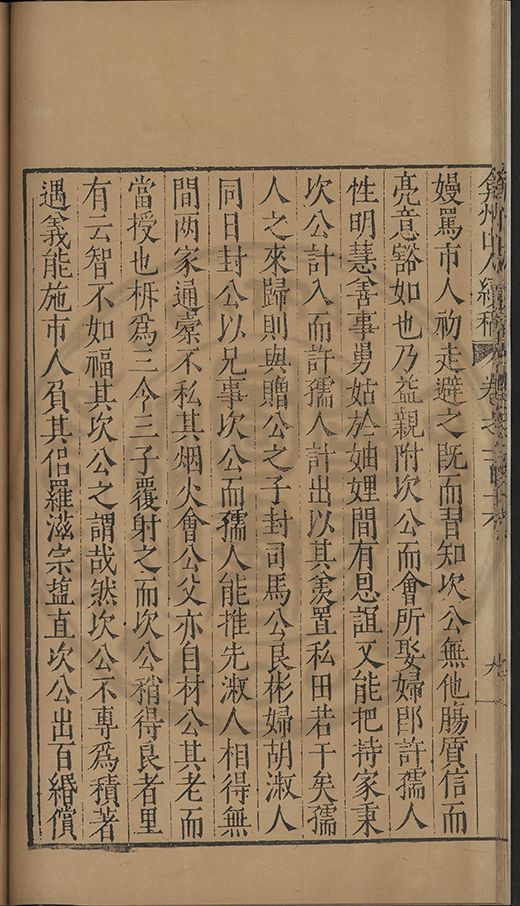 弇州山人續稿 卷之一百四十六 九
嫚罵市人初走避之既而習知次公無他腸質信而
亮意豁如也乃益親附次公而會所娶婦郎許孺人
性明慧善事舅姑於妯娌間有恩誼又能把持家秉
次公計入而許孺人計出以其羨置私田若干矣孺
人之來歸則與贈公之子封司馬公良彬婦胡淑人
同日封公以兄事次公而孺人能推先淑人相得無
間兩家通橐不私其烟火會公父亦自材公其老而
當授也柝爲三今三子覆射之而次公稍得良者里
有云智不如福其次公之謂哉然次公不專爲積著
遇義能施市人負其侶羅滋宗鹽直次公出百緡償